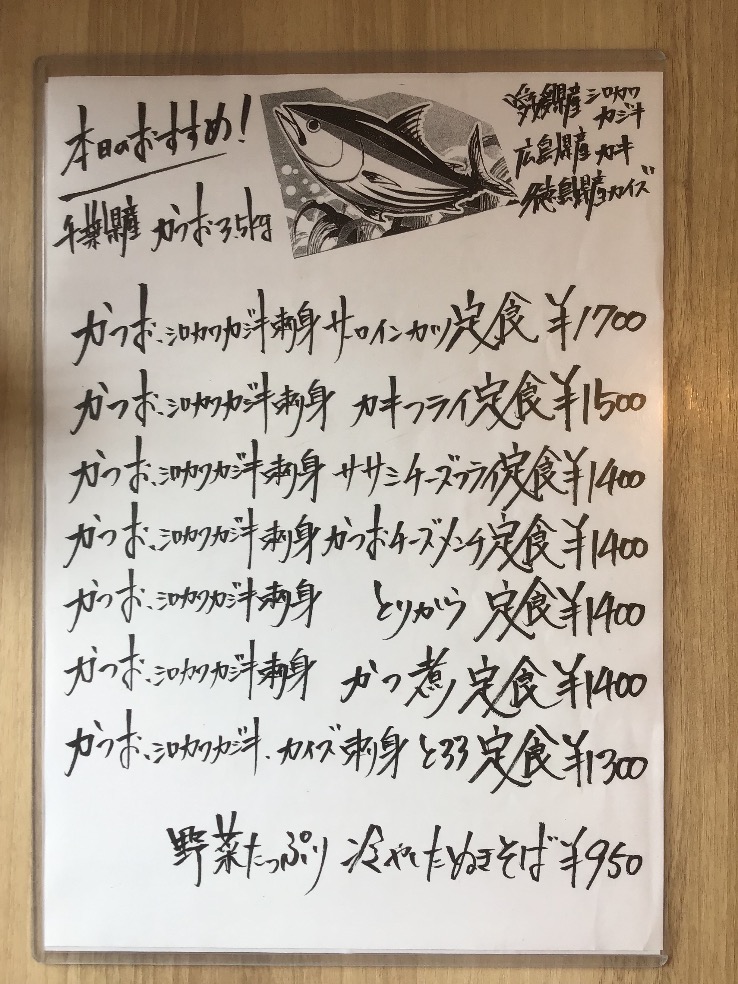 本日のおすすめ!
千葉県産 かつお3.5kg
愛媛県産シロカワ
カジキ
広島県産 カキ
徳島県産カイズ
かつお、シロカワカジキ刺身 サーロインカツ定食 ¥1700
かつお、シロカワカジキ刺身 カキフライ定食¥1500
かつお、シロカワカジキ刺身 ササミチーズフライ定食¥1400
かつお、シロカワカジキ刺身かつおチーズメンチ定食¥1400
かつお、シロカワカジキ刺身 とりから 定食¥1400
かつお、シロカワカジキ刺身 かつ煮定食¥1400
かつお、シロカワカジキ、カイズ刺身 とろろ定食¥1300
野菜たっぷり 冷やしたぬきそば¥950